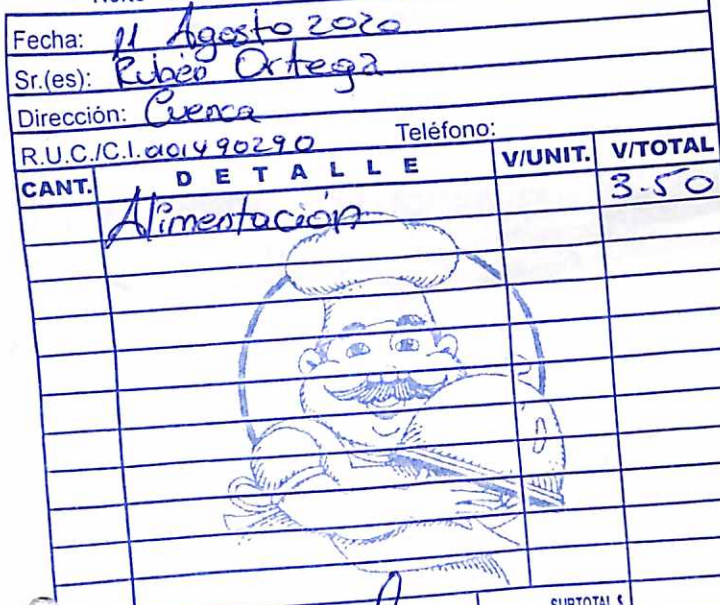 Fecha: 11 Agosto 2020
Sr.(es): Rubén Ortega
Dirección: Cuenca
R.U.C./C.I. 0101490290 Teléfono:
CANT. DETALLE V/UNIT. V/TOTAL
Alimentación 3.50
SUBTOTAL $